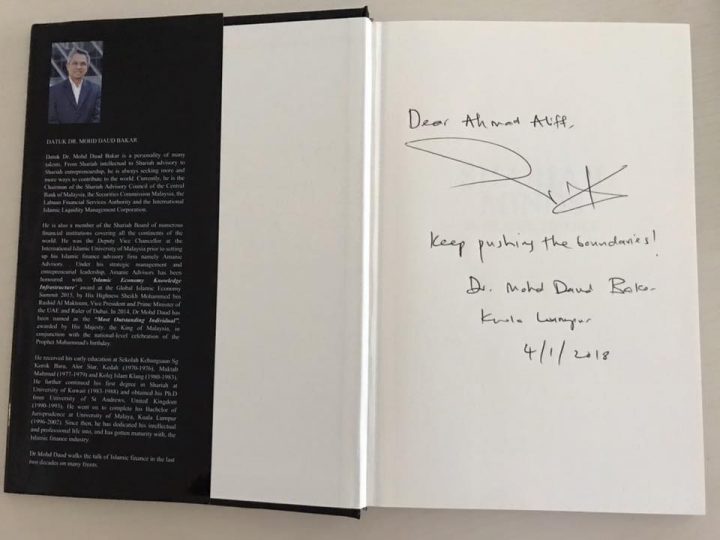 DATUK DR. MOHD DAUD BAKAR
Datuk Dr. Mohd Daud Bakar is a personality of many
talents. From Shariah intellectual to Shariah advisory to
Shariah entrepreneurship, he is always seeking more and
more ways to contribute to the world. Currently, he is the
Chairman of the Shariah Advisory Council of the Central
Bank of Malaysia, the Securities Commission Malaysia, the
Labuan Financial Services Authority and the International
Islamic Liquidity Management Corporation.
He is also a member of the Shariah Board of numerous
financial institutions covering all the continents of the
world. He was the Deputy Vice Chancellor at the
International Islamic University of Malaysia prior to setting
up his Islamic finance advisory firm namely Amanie
Advisors. Under his strategic management and
entrepreneurial leadership, Amanie Advisors has been
honoured with "Islamic Economy Knowledge
Infrastructure" award at the Global Islamic Economy
Summit 2015, by His Highness Sheikh Mohammed bin
Rashid Al Maktoum, Vice President and Prime Minister of
the UAE and Ruler of Dubai. In 2014, Dr Mohd Daud has
been named as the "Most Outstanding Individual",
awarded by His Majesty, the King of Malaysia, in
conjunction with the national-level celebration of the
Prophet Muhammad's birthday.
He received his early education at Sekolah Kebangsaan Sg
Baru, Alor Star, Kedah (1970-1976), Maktab
Mahmud (1977-1979) and Kolej Islam Klang (1980-1983).
He further continued his first degree in Shariah at
University of Kuwait (1983-1988) and obtained his Ph.D
from University of St Andrews, United Kingdom
(1990-1993). He went on to complete his Bachelor of
Jurisprudence at University of Malaya, Kuala Lumpur
(1996-2002). Since then, he has dedicated his intellectual
and professional life into, and has gotten maturity with, the
Islamic finance industry.
Dr Mohd Daud walks the talk of Islamic finance in the last
two decades on many fronts.
Dear Ahmad Aliff,
Keep pushing the boundaries!
Dr. Mohd Daud Bakar
Kuala Lumpur
4/1/2018